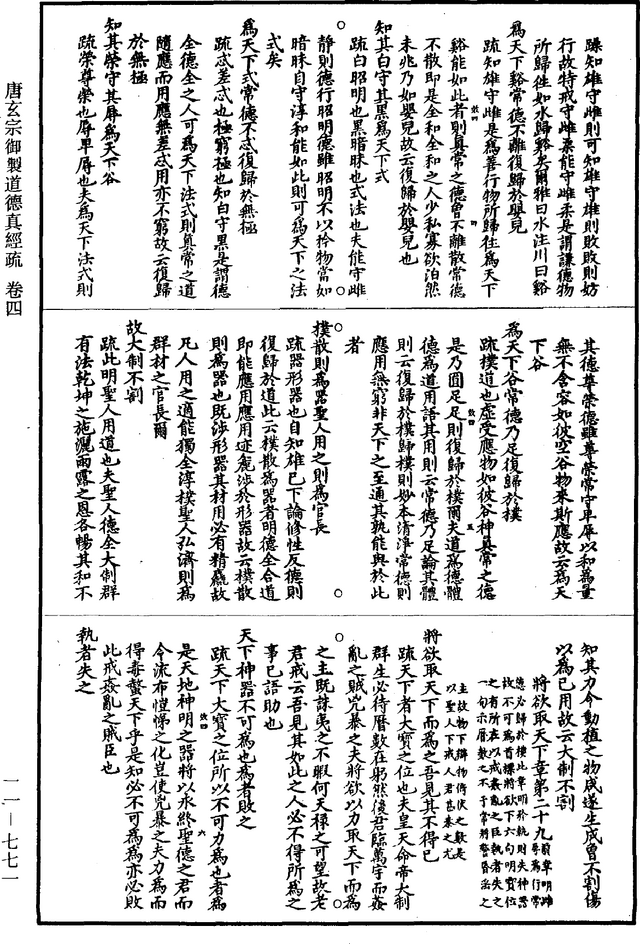 唐玄宗御製道德真經疏 卷四
躁知雄守雌則可知雄守雄則敗敗則妨
行故特戒守雌柔能守雌柔是謂謙德物
所歸往如水歸谿矣爾雅曰水注川曰谿
爲天下谿常德不離復歸於嬰兒
疏知雄守雌是爲善行物所歸往爲天下
谿能如此者則真常之德曾不離散常德
不散即是全和全和之人少私寡欲泊然
未兆乃如嬰兒故云復歸於嬰兒也
知其白守其黑爲天下式
疏白昭明也黑暗昧也式法也夫能守雌
靜則德行昭明德雖昭明不以矜物當如
暗昧自守淳和能如此則可爲天下之法
式矣
爲天下式常德不忒復歸於無極
疏忒差忒也極窮極也知白守黑是謂德
全德全之人可爲天下法式則真常之道
隨應而用應無差忒用亦不窮故云復歸
於無極
知其榮守其辱爲天下谷
疏榮尊榮也辱卑辱也夫爲天下法式則
其德尊榮德雖尊榮常守卑辱以和爲量
無不含容如彼空谷物來斯應故云爲天
下谷
爲天下谷常德乃足復歸於樸
疏樸道也虛受應物如彼谷神真常之德
是乃圓足足則復歸於樸爾夫道爲德體
德爲道用語其用則云常德乃足論其體
則云復歸於樸歸樸則妙本清淨常德則
應用無窮非天下之至通其孰能與於此
者
樸散則爲器聖人用之則爲官長
疏器形器也自知雄已下論修性反德則
復歸於道此云樸散爲器者明德全合道
即能應用應用述麁涉於形器故云樸散
則爲器也既涉形器其材用必有精麁故
凡人用之適能獨全淳樸聖人弘濟則爲
群材之官長爾
故大制不割
疏此明聖人用道也夫聖人德全大制群
有法乾坤之施灑雨露之恩各暢其和不
知其力令動植之物咸遂生成曾不割傷
以爲已用故云大制不割
將欲取天下章第二十九
將欲取天下而爲之吾見其不得已
疏天下者大寶之位也夫皇天命帝大制
群生必待曆數在躬然後君臨萬宇而姦
亂之賊兇暴之夫將欲以力取天下而爲
之主既誅夷之不暇何天祿之可望故老
君戒云吾見其如此之人必不得所爲之
事已語助也
天下神器不可爲也爲者敗之
疏天下大寶之位所以不可力爲也者爲
是天地神明之器將以永終聖德之君而
令流布愷悌之化豈使兇暴之夫力爲而
得毒螫天下乎是知必不可爲爲亦必敗
此戒姦亂之賊臣也
執者失之
一一—七七一